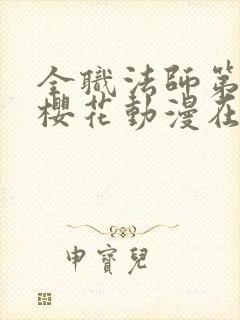 全職法師第
櫻花動漫在
申寶兒